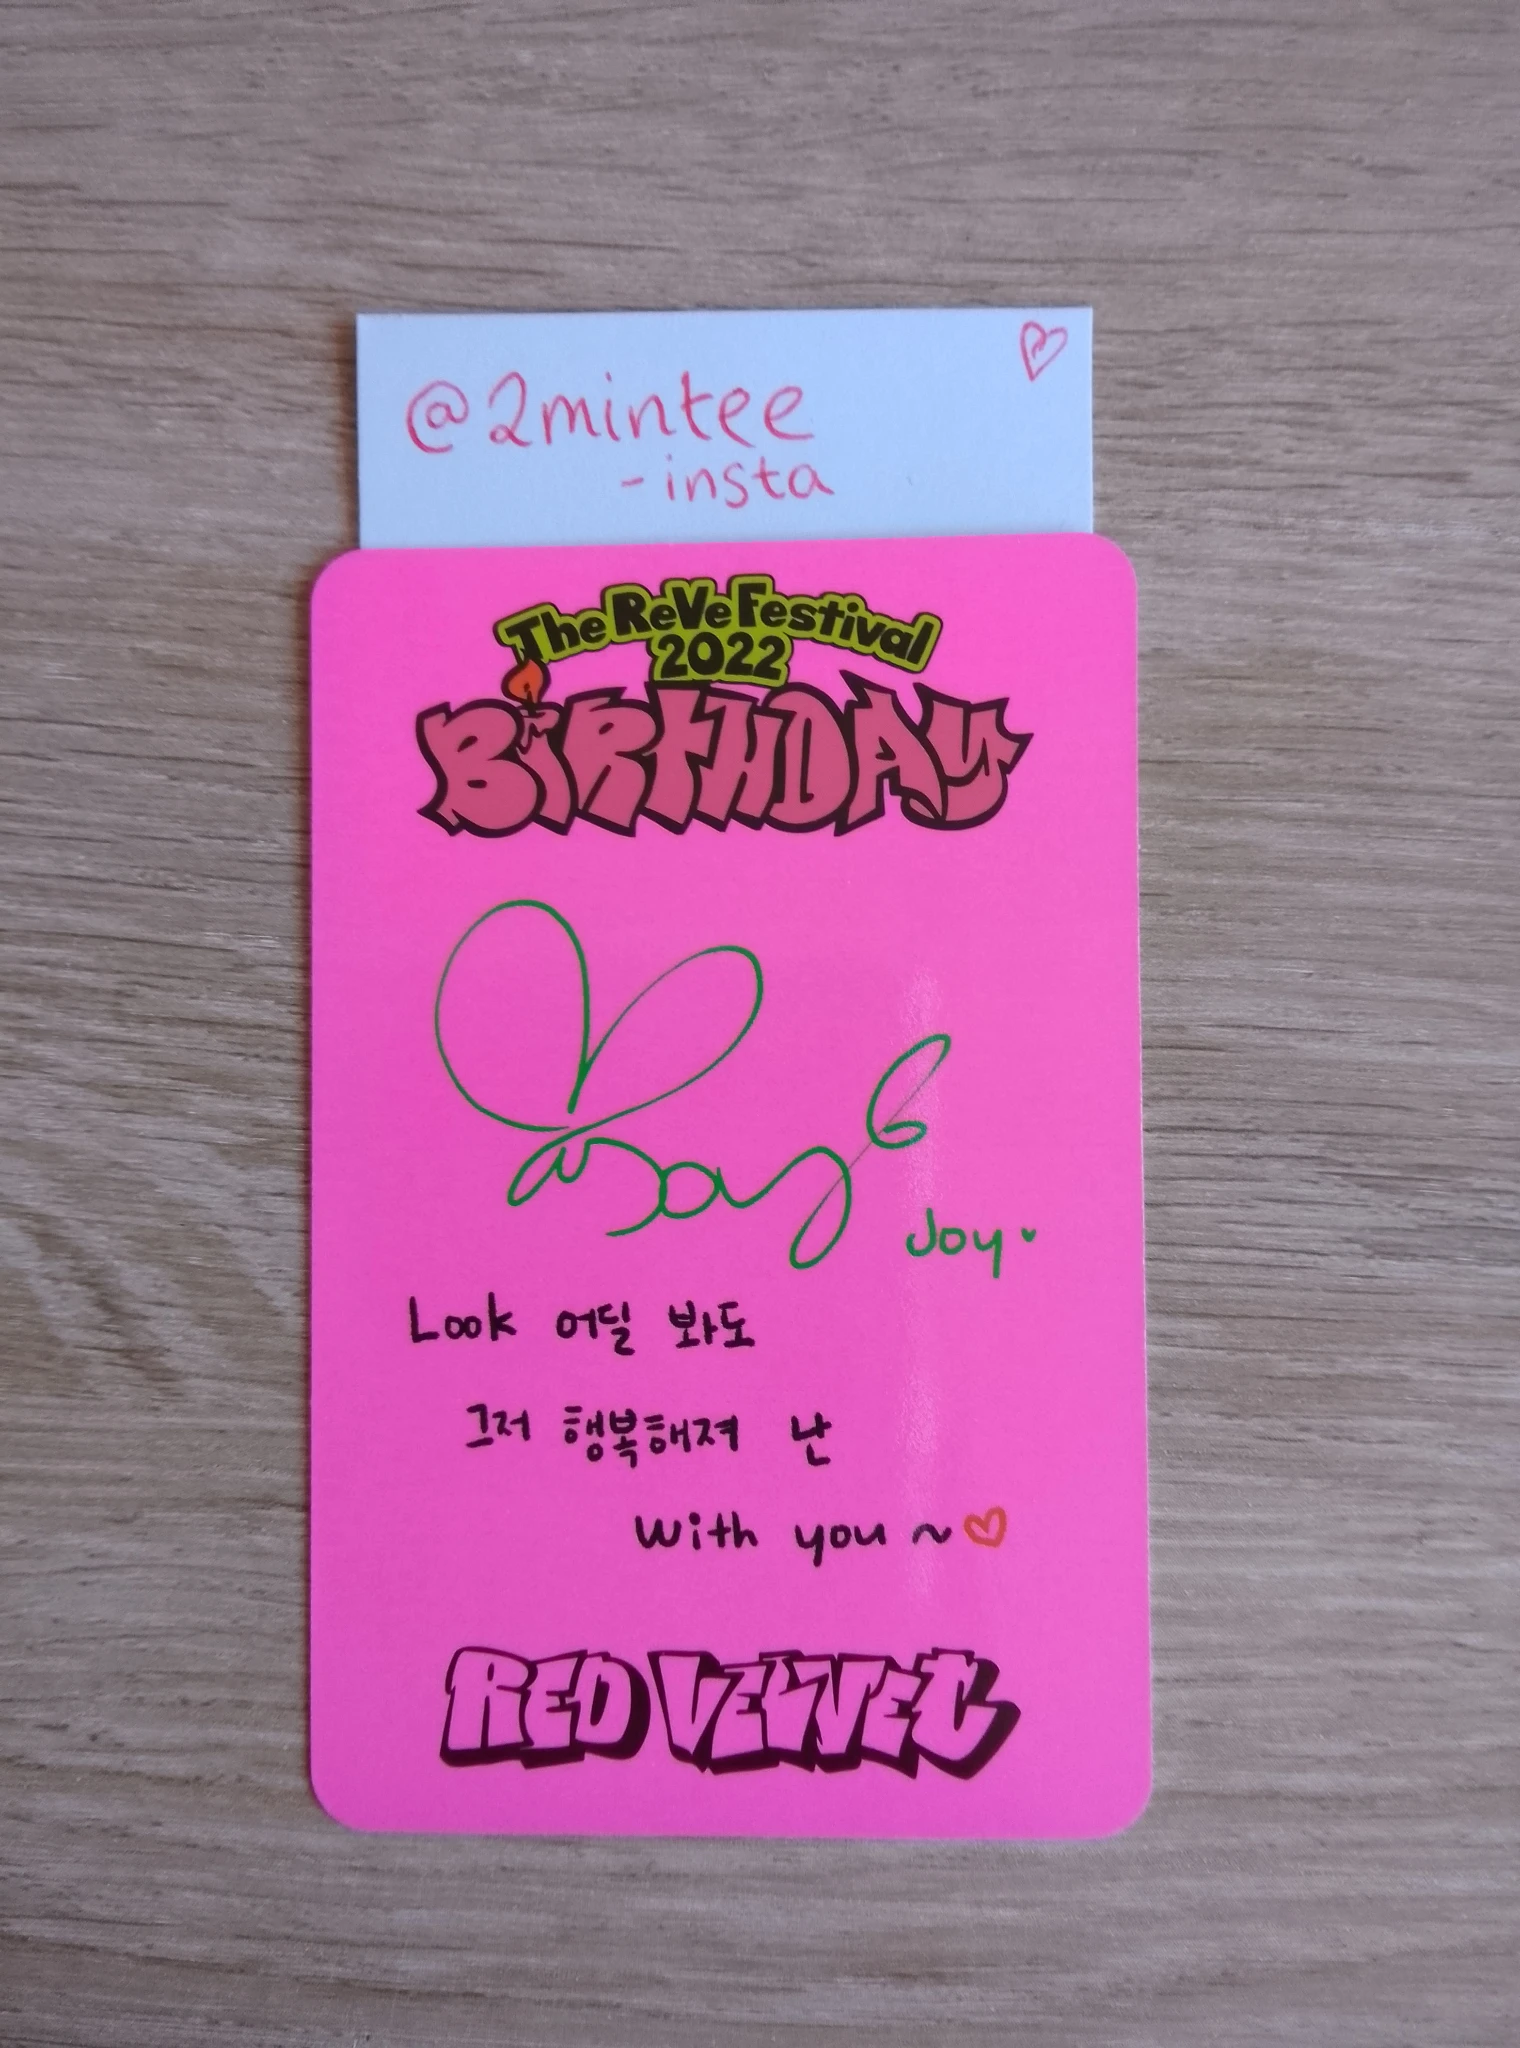 @2mintee
-insta
The ReVe Festival
2022
BiRTHDAY
Joy
Joy
Look 어딜 봐도
그저 행복해져 난
With you ~
RED VELVET